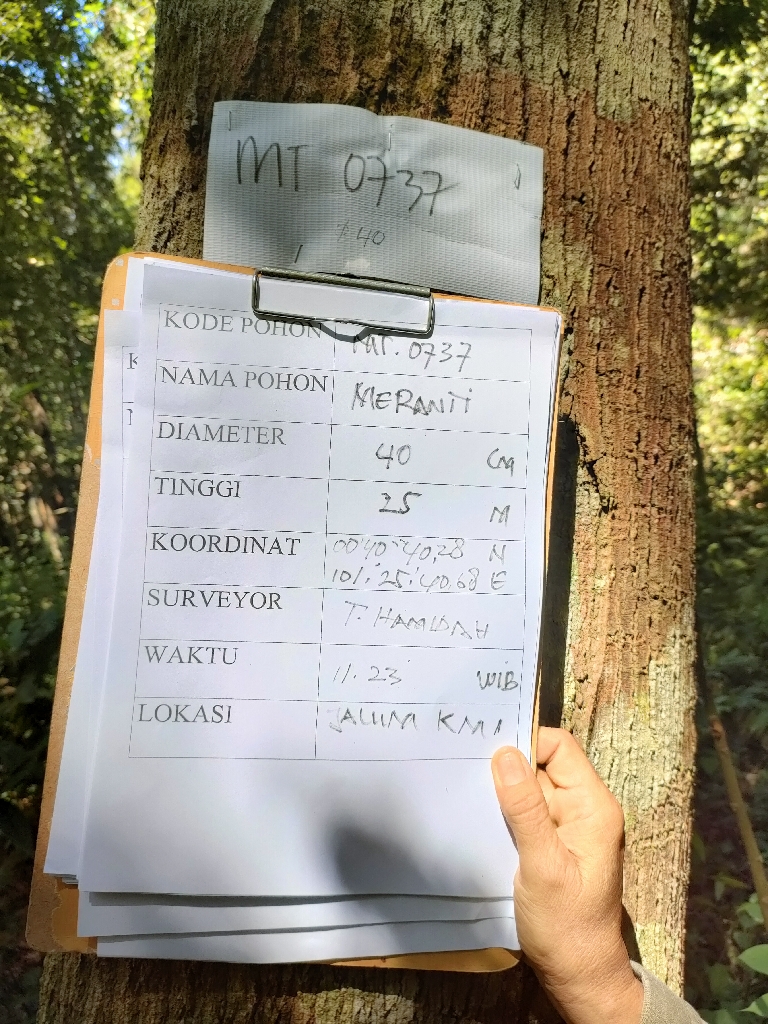 MT 0737
40
KODE POHON MT. 0737
NAMA POHON MERANTI
DIAMETER 40 Cm
TINGGI 25 M
KOORDINAT 00°40'40,28 N
101°.25'.40,68 E
SURVEYOR T. HAMIDAH
WAKTU 11. 23 WIB
LOKASI JALUM KM1